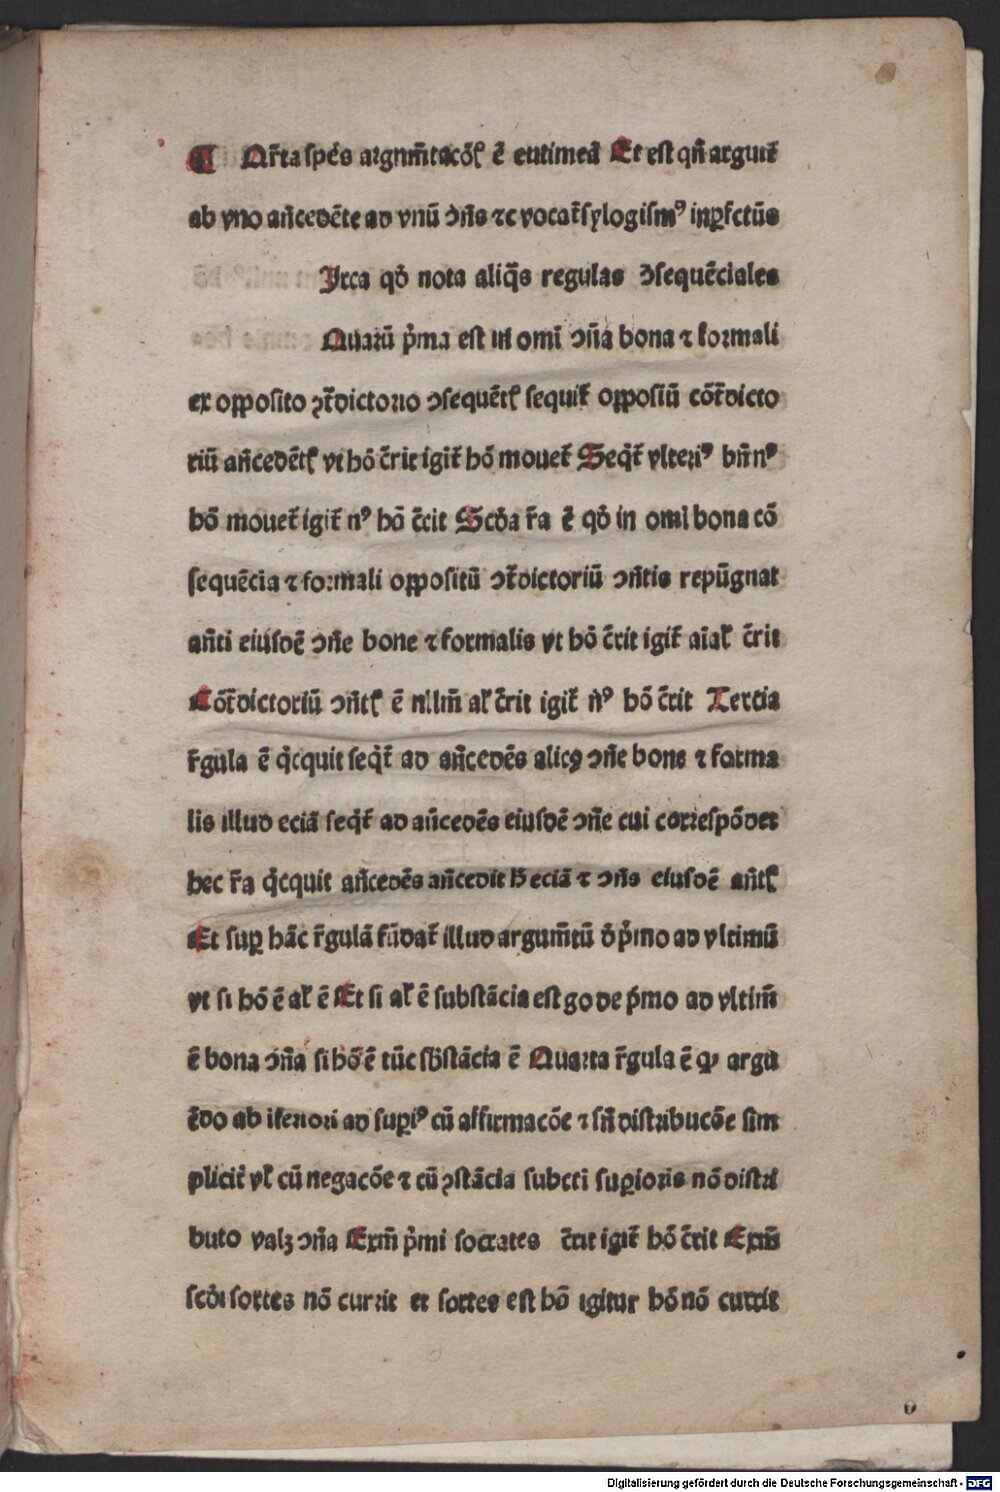 ¶ Qr̄ta spēs argum̄tacōꝭ ē entimeā Et est qn̄ arguit᷑
ab vno an̄cedēte ad vnū ↄ̄ns ⁊c vocat᷑ sylogismꝰ inꝑfctūs
Irca qd̓ nota aliq̄s regulas ↄsequēciales
Quarū p̓ma est in omī ↄn̄a bona ⁊ formali
ex opposito ↄt᷑dictorio ↄsequētꝭ sequit᷑ oppositū cōt᷑dicto
riū an̄cedētꝭ vt hō c̄rit igit᷑ hō mouet᷑ Seq̓t᷑ vlteriꝰ bn̄ nꝰ
hō mouet᷑ igit᷑ nꝰ hō c̄rit Scd̓a r̄a ē qd̓ in omī bona cō
sequēcia ⁊ formali oppositū ↄt᷑dictoriū ↄn̄tis repūgnat
an̄ti eiusdē ↄn̄e bone ⁊ formalis vt hō c̄rit igit᷑ aīal c̄rit
Cōt᷑dictoriū ↄn̄tꝭ ē nllm̄ al̓ c̄rit igit᷑ n̄ꝰ hō c̄rit Tercia
r̄gula ē q̓cquit seq̓t᷑ ad an̄cedēs alicꝰ ↄn̄e bone ⁊ forma
lis illud eciā seq̓t᷑ ad an̄cedēs eiusdē ↄn̄e cui correspōdet
hec r̄a q̓cquit an̄cedēs an̄cedit h̄ eciā ⁊ ↄn̄s eiusdē an̄tꝭ
Et suꝑ hāc r̄gulā fūdat᷑ illud argum̄tū d̓ p̓mo ad vltimū
vt si hō ē al̓ ē Et si al̓ ē substācia est go de p̓mo ad vltim̄
ē bona ↄn̄a si hō ē tūc sb̄stācia ē Quarta r̄gula ē ꝙ argu
ēdo ab īferiori ad suꝑiꝰ cū affirmacōe ⁊ sn̄ distribucōe sim
plicit᷑ vl̓ cū negacōe ⁊ cū ↄstācia subcti suꝑioris nō distri
buto valꝫ ↄn̄a Exm̄ p̓mi socrates c̄rit igit᷑ hō c̄rit Exm̄
scd̓i sortes nō currit et sortes est hō igitur hō nō currit
Digitalisierung gefördert durch die Deutsche Forschungsgemeinschaft - DFG